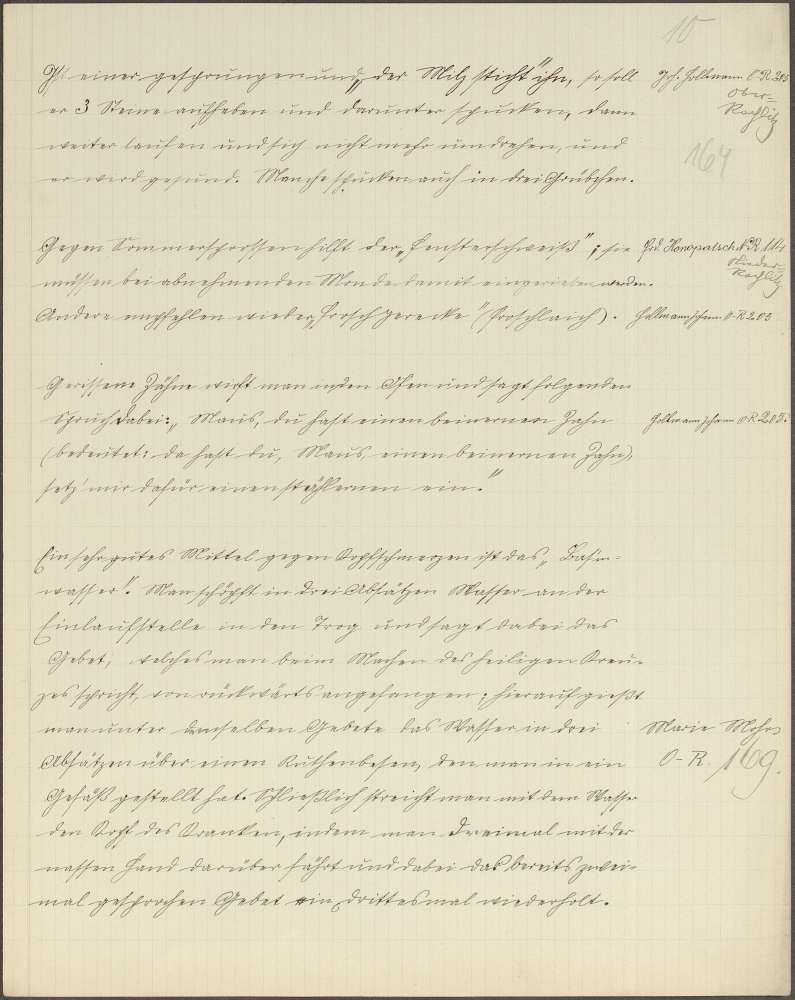 10
Ist einer gesprungen und „der Milz sticht" ihn, so soll Joh. Hollmann O R. 205
Ober-
Rochlitz
er 3 Steine aufheben und darunter spucken, dann
weiter laufen und sich nicht mehr umdrehen, und
164
er wird gesund. Manche spucken auch in drei Grübchen.
Gegen Sommersprossen hilft der „Fensterschweiß"; sie Konopatsch N R 114
Nieder-
Rochlitz
müssen bei abnehmenden Monde damit eingerieben werden.
Andere empfehlen wieder „Froschgerecke" (Froschlaich). O-R 203
Gerissene Zähne wirft man in den Ofen und sagt folgenden
Spruch dabei: „Maus, du hast einen beinernen Zahn O R 205.
(bedeutet: da hast du, Maus, einen beinernen Zahn),
setz' mir dafür einen stählernen ein."
Ein sehr gutes Mittel gegen Kopfschmerzen ist das
wasser". Man schöpft in drei Absätzen Wasser an der
Einlaufstelle in den Trog und sagt dabei das
Gebet, welches man beim Machen des heiligen Kreu-
zes spricht, von rückwärts angefangen; hierauf gießt
man unter demselben Gebete das Wasser in drei Marie Mohr
Absätzen über einen Ruthenbesen, den man in ein O-R. 169.
Gefäß gestellt hat. Schließlich streicht man mit dem Wasser
den Kopf des Kranken, indem man dreimal mit der
nassen Hand darüber fährt und dabei das bereits zwei-
mal gesprochen Gebet ein drittesmal wiederholt.